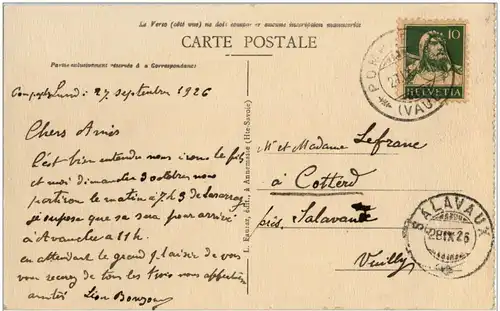 Le Verso (côté vue) ne doit contenir aucune inscription manuscrite
CARTE POSTALE
Partie exclusivement réservée à la Correspondance
lundi 27 septembre 1926
Chers Amis
C'est bien entendu nous irons le fils
et moi dimanche 3 octobre nous
partirons le matin à 7h3 de Lasarraz
je supose que se sera pour arrivé
à Avanche à 11h.
en attendant le grand plaisir de vous
vous recevez de tous les trois nous
amitiés Léon
L. Fauraz, édit., à Annemasse (Hte-Savoie)
10
HELVETIA
(VAUD)
Mr et Madame Lefranc
à Cotterd
près Salavaux
Vuilly
SALAVAUX
28.IX.26